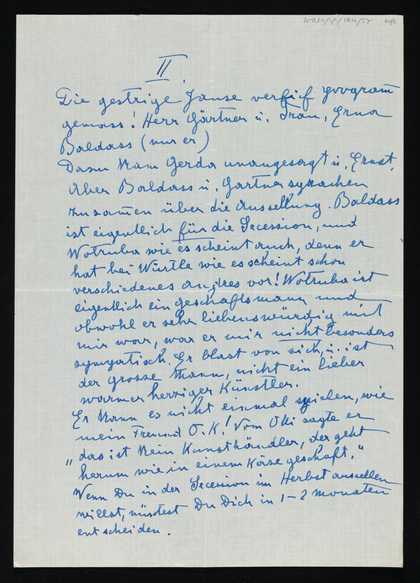 II.
Die gestrige Jause verlief programm
gemäss! Herr Gärtner u. Frau, Erna
Baldass (nur er)
Dann kam Gerda unangesagt u. Ernst.
Aber Baldass u. Gartner sprachen
zusamen über die Ausstellung. Baldass
ist eigentlich für die Secession, und
Wotruba wie es scheint auch, denn er
hat bei Würtle wie es scheint schon
verschiedenes andres vor! Wotruba ist
eigentlich ein geschäftsmann und
obwohl er sehr liebenswürdig mit
mir war, war er mir nicht besonders
sympatisch. Er blast von sich, u. ist
der grosse Mann, nicht ein lieber
warmerherziger Künstler.
Er kann es nicht einmal spielen, wie
mein Freund O.K.! Vom Oki sagte er
„das ist kein Kunsthändler, der geht
herum wie in einem Käse geschäft."
Wenn Du in der Secession im Herbst ausstellen
willst, müsstest Du Dich in 1–2 monaten
entscheiden.